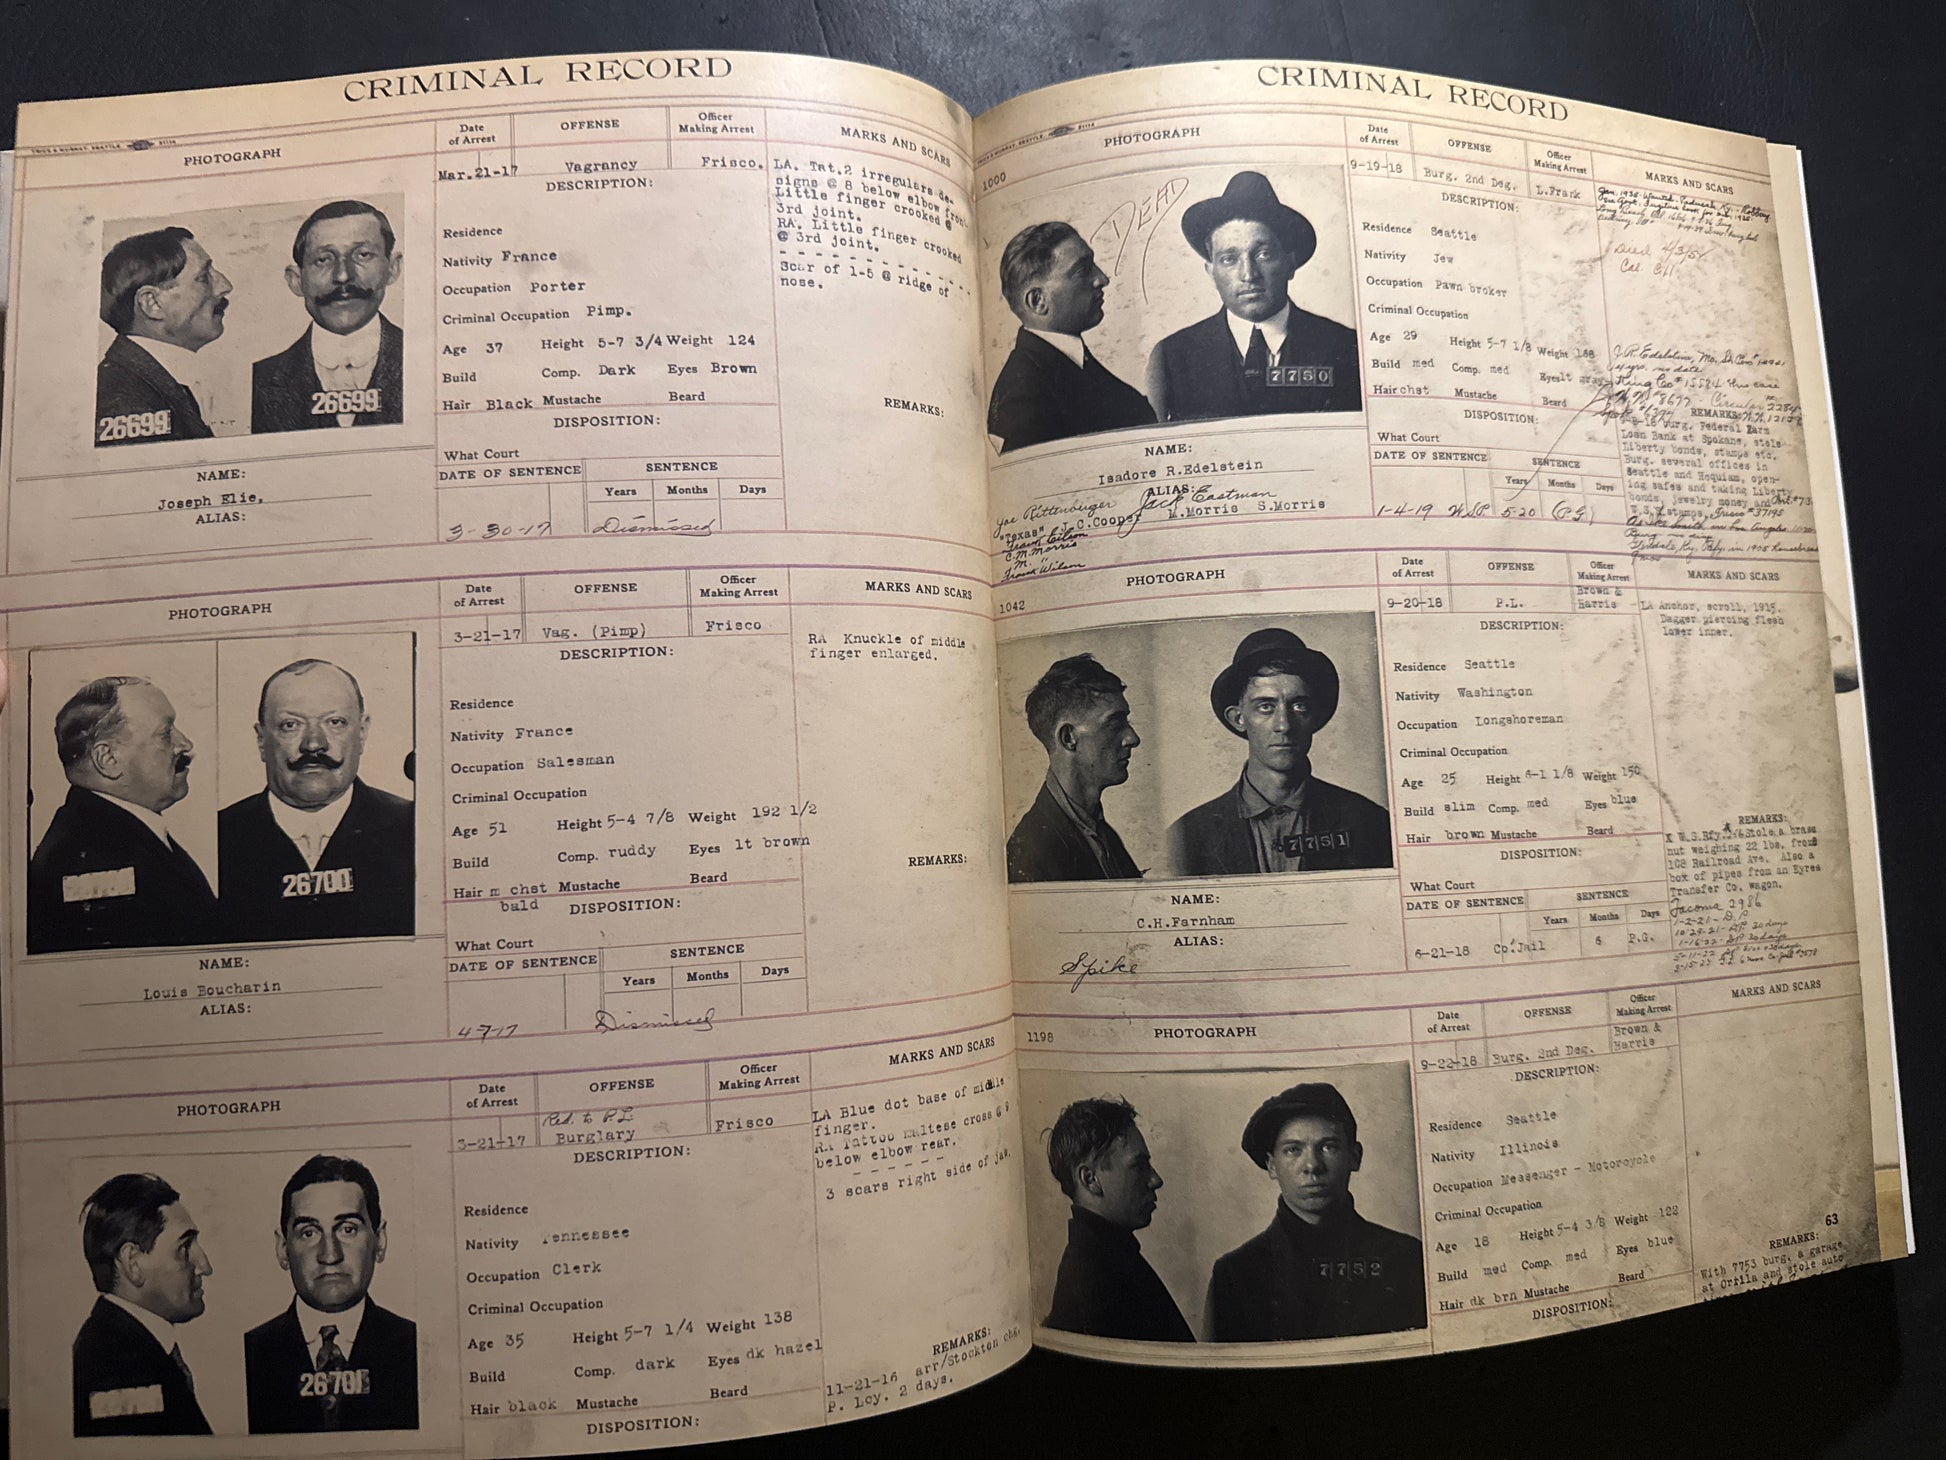 CRIMINAL RECORD
TRICK & MURRAY, SEATTLE 51114
PHOTOGRAPH
Date of Arrest
OFFENSE
Officer Making Arrest
MARKS AND SCARS
Mar.21-17
Vagrancy
Frisco.
DESCRIPTION:
Residence
Nativity France
Occupation Porter
Criminal Occupation Pimp.
Age 37 Height 5-7 3/4 Weight 124
Build Comp. Dark Eyes Brown
Hair Black Mustache Beard
DISPOSITION:
What Court
DATE OF SENTENCE SENTENCE
Years Months Days
3-30-17 Dismissed
LA. Tat.2 irregulars de-
signs @ 8 below elbow front
Little finger crooked @
3rd joint.
RA. Little finger crooked
@ 3rd joint.
Scar of 1-5 @ ridge of
nose.
REMARKS:
26699
26699
NAME:
Joseph Elie.
ALIAS:
PHOTOGRAPH
Date of Arrest
OFFENSE
Officer Making Arrest
MARKS AND SCARS
3-21-17
Vag. (Pimp)
Frisco
DESCRIPTION:
Residence
Nativity France
Occupation Salesman
Criminal Occupation
Age 51 Height 5-4 7/8 Weight 192 1/2
Build Comp. ruddy Eyes lt brown
Hair m chst Mustache Beard
bald
DISPOSITION:
What Court
DATE OF SENTENCE SENTENCE
Years Months Days
4-7-17 Dismissed
RA Knuckle of middle
finger enlarged.
REMARKS:
26700
NAME:
Louis Boucharin
ALIAS:
PHOTOGRAPH
Date of Arrest
OFFENSE
Officer Making Arrest
MARKS AND SCARS
3-21-17
Red. to P.L.
Burglary
Frisco
DESCRIPTION:
Residence
Nativity Tennessee
Occupation Clerk
Criminal Occupation
Age 35 Height 5-7 1/4 Weight 138
Build Comp. dark Eyes dk hazel
Hair black Mustache Beard
DISPOSITION:
LA Blue dot base of middle
finger.
RA Tattoo maltese cross @ 9
below elbow rear.
3 scars right side of jaw.
REMARKS:
11-21-16 arr/Stockton chg.
P. Lcy. 2 days.
26701
CRIMINAL RECORD
TRICK & MURRAY, SEATTLE 51114
1000
PHOTOGRAPH
Date of Arrest
OFFENSE
Officer Making Arrest
MARKS AND SCARS
9-19-18
Burg. 2nd Deg.
L.Frank
DESCRIPTION:
Residence Seattle
Nativity Jew
Occupation Pawn broker
Criminal Occupation
Age 29 Height 5-7 1/8 Weight 168
Build med Comp. med Eyes lt gray
Hair chst Mustache Beard
DISPOSITION:
What Court
DATE OF SENTENCE SENTENCE
Years Months Days
1-4-19 WSP 5-20 (P.G.)
Died 4/3/57
Cal.
J.R. Edelstein, Mo. St. Pen
4 yrs. no date
King Co # 15584 this case
REMARKS:
Burg. Federal Farm
Loan Bank at Spokane, stole
Liberty bonds, stamps etc.
Burg. several offices in
Seattle and Hoquiam, open-
ing safes and taking Liberty
bonds, jewelry money and
W.S.S. stamps. Frisco # 37195
DEAD
7750
NAME:
Isadore R.Edelstein
ALIAS:
Joe Rittenburger Jack Eastman
"Texas" J.C.Cooper M.Morris S.Morris
C.M.Morris
Frank Wilson
1042
PHOTOGRAPH
Date of Arrest
OFFENSE
Officer Making Arrest
MARKS AND SCARS
9-20-18
P.L.
Brown &
Harris
DESCRIPTION:
Residence Seattle
Nativity Washington
Occupation Longshoreman
Criminal Occupation
Age 25 Height 6-1 1/8 Weight 150
Build slim Comp. med Eyes blue
Hair brown Mustache Beard
DISPOSITION:
What Court
DATE OF SENTENCE SENTENCE
Years Months Days
6-21-18 Co. Jail 6 P.G.
LA Anchor, scroll, 1915.
Dagger piercing flesh
lower inner.
REMARKS:
Stole a brass
nut weighing 22 lbs. from
108 Railroad Ave. Also a
box of pipes from an Eyres
Transfer Co. wagon.
Tacoma 2986
1-2-21 - D.P.
10-29-21 - D.P. 30 days
1-16-22 - D.P. 30 days
7751
NAME:
C.H.Farnham
ALIAS:
Spike
1198
PHOTOGRAPH
Date of Arrest
OFFENSE
Officer Making Arrest
MARKS AND SCARS
9-22-18
Burg. 2nd Deg.
Brown &
Harris
DESCRIPTION:
Residence Seattle
Nativity Illinois
Occupation Messenger - Motorcycle
Criminal Occupation
Age 18 Height 5-4 3/8 Weight 122
Build med Comp. med Eyes blue
Hair dk brn Mustache Beard
DISPOSITION:
63
REMARKS:
With 7753 burg. a garage
at Orrila and stole auto
7752